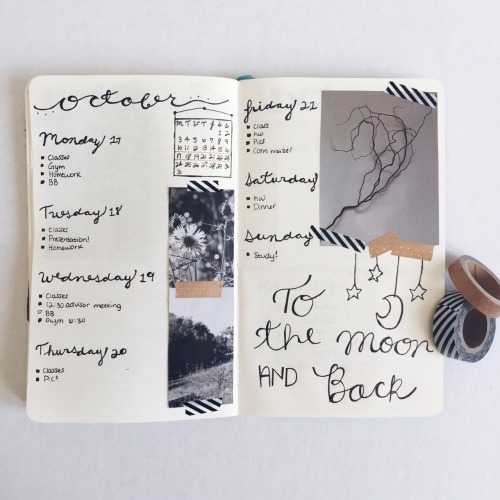 october
Monday 17
Classes
Gym
Homework
BB
Tuesday 18
Classes
Presentation!
Homework
Wednesday 19
Classes
12:30 advisor meeting
BB
Gym 6:30
Thursday 20
Classes
Pic²
M T W T F S S
1 2
3 4 5 6 7 8 9
10 11 12 13 14 15 16
17 18 19 20 21 22 23
24 25 26 27 28 29 30
31
friday 21
Class
hw
Pic²
Corn maize!
Saturday
hw
Dinner
Sunday
Study!
To
the moon
AND Back